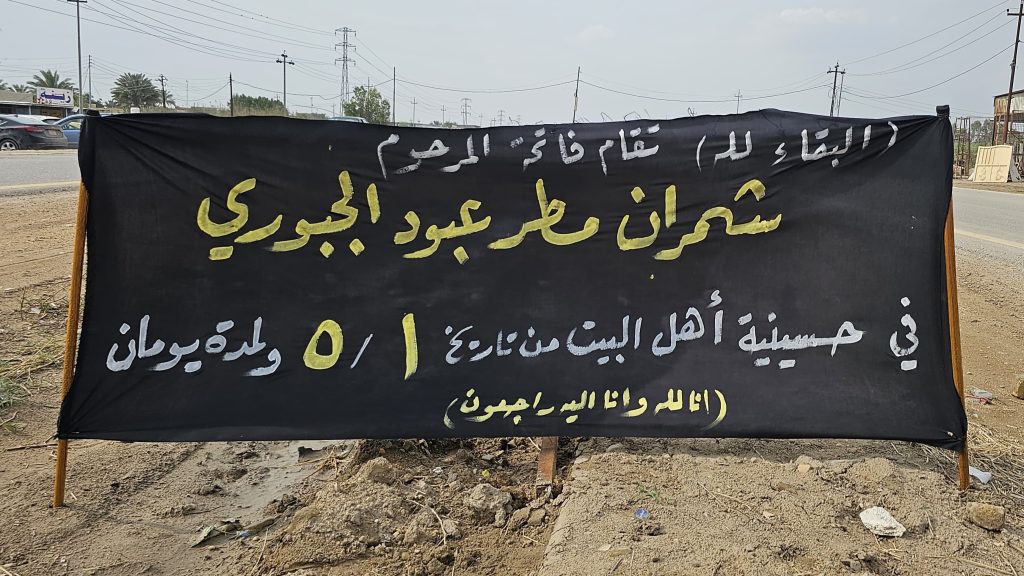 (البقاء لله) تقام فاتحة المرحوم
شمران مطر عبود الجبوري
في حسينية أهل البيت من تاريخ ٥/١ ولمدة يومان
(انا لله وانا اليه راجعون)